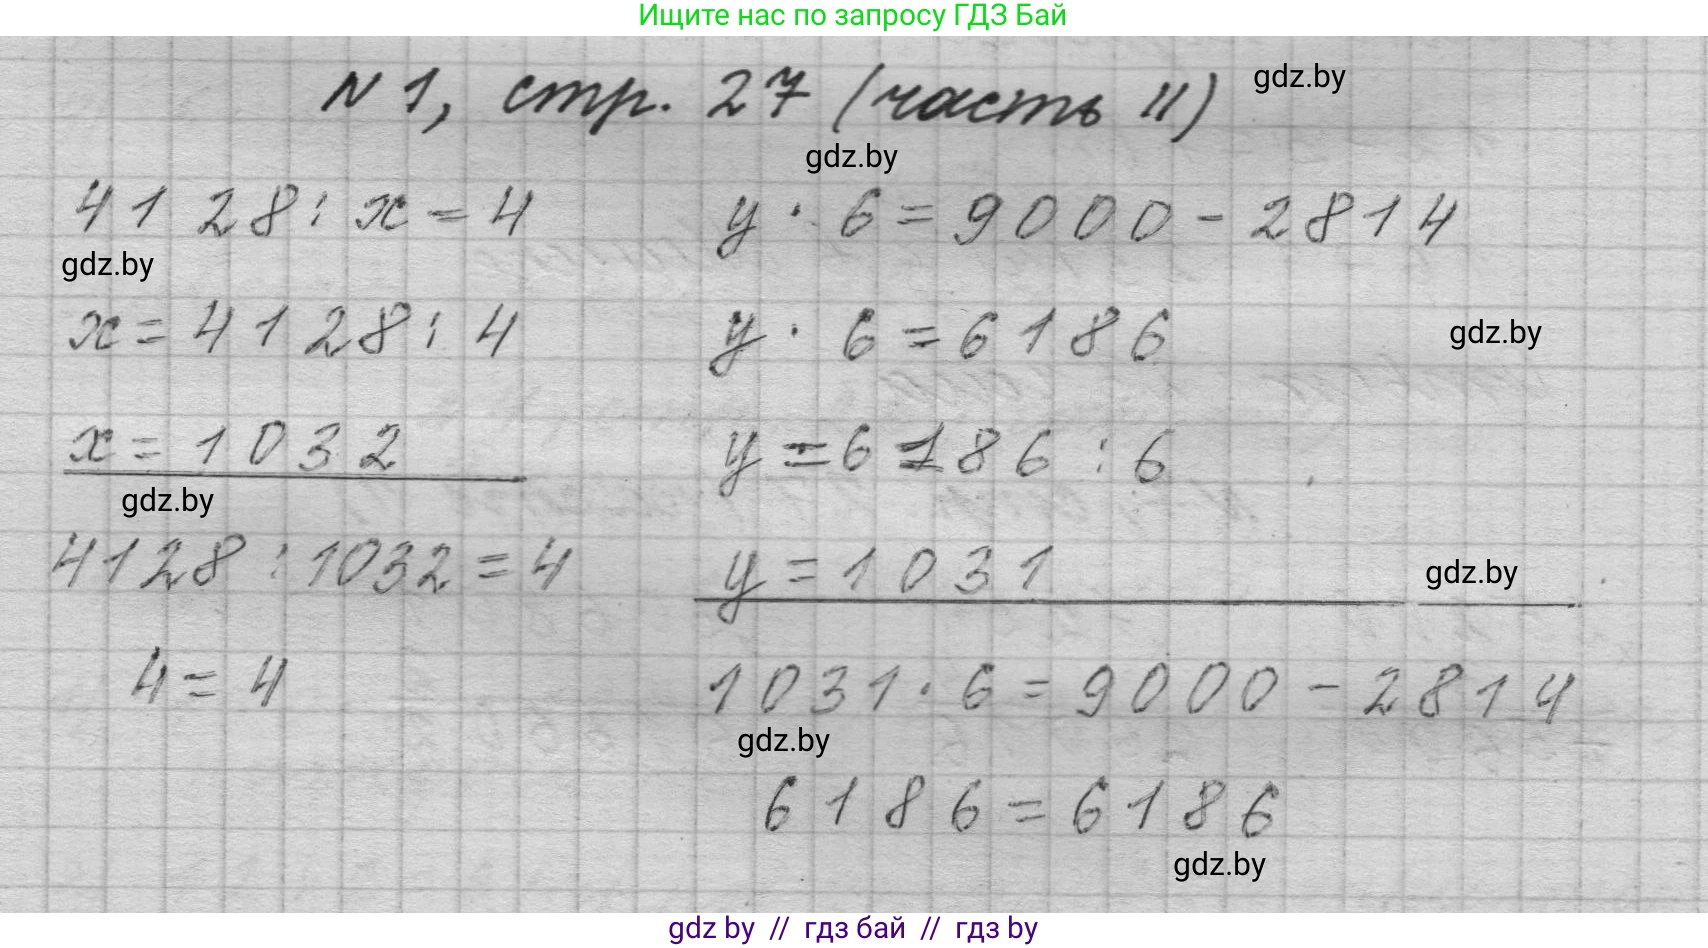 Ищите нас по запросу ГДЗ Бай
N 1, стр. 27 (часть II)
gdz.by
gdz.by
4128 : x = 4
gdz.by
x = 4128 : 4
x = 1032
gdz.by
4128 : 1032 = 4
4 = 4
y · 6 = 9000 - 2814
y · 6 = 6186
gdz.by
y = 6186 : 6
y = 1031
gdz.by
1031 · 6 = 9000 - 2814
gdz.by
6186 = 6186
gdz.by
gdz by // гдз бай // гдз by